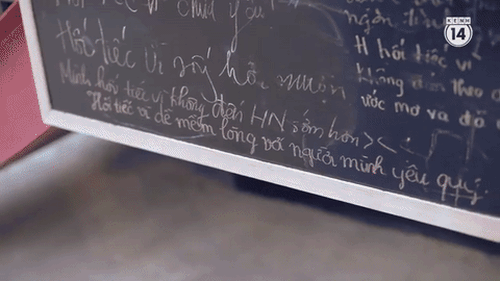 KENH 14
vì chưa yêu
Hối tiếc vì muộn
Mình hối tiếc vì không đến HN sớm hơn ><
Hối tiếc vì dễ mềm lòng với người mình yêu quý.
H hối tiếc vì
không theo
ước mơ và đã